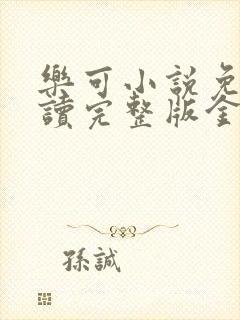 樂可小說免
讀完整版全
孫誠